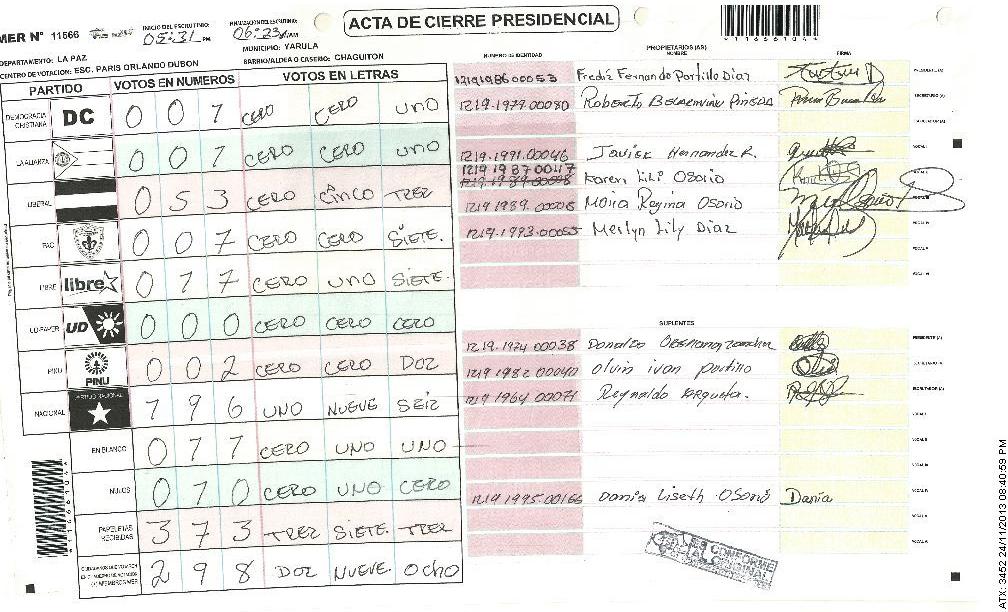 ACTA DE CIERRE PRESIDENCIAL
MER Nº 11566
INICIO DEL ESCRUTINIO: 05:31 PM
FINALIZACION DEL ESCRUTINIO: 06:23
DEPARTAMENTO: LA PAZ
MUNICIPIO: YARULA
CENTRO DE VOTACION: ESC. PARIS ORLANDO DUBON
BARRIO/ALDEA O CASERIO: CHAGUITON
1166104
PARTIDO VOTOS EN NUMEROS VOTOS EN LETRAS
DEMOCRACIA CRISTIANA DC 0 0 1 CERO CERO UNO
LA ALIANZA 0 0 1 CERO CERO UNO
LIBERAL 0 5 3 CERO CINCO TREZ
PAC 0 0 7 CERO CERO SIETE.
LIBRE libre 0 1 7 CERO UNO SIETE.
UD-FAPER UD 0 0 0 CERO CERO CERO
PINU PINU 0 0 2 CERO CERO DOZ
NACIONAL PARTIDO NACIONAL 1 9 6 UNO NUEVE SEIZ
EN BLANCO 0 1 1 CERO UNO UNO
NULOS 0 1 0 CERO UNO CERO
PAPELETAS RECIBIDAS 3 7 3 TREZ SIETE. TREZ
CIUDADANOS QUE VOTARON 2 9 8 DOZ NUEVE. OCHO
PROPIETARIOS (AS)
NUMERO DE IDENTIDAD NOMBRE FIRMA
1219198600053 Fredis Fernando Portillo Diaz PRESIDENTE (A)
1219-1979-00080 Roberto PINEDA SECRETARIO (A)
ESCRUTADOR (A)
1219.1991.00046 Javier Hernandez R. VOCAL I
1219 1987 00117
Karen Lili Osorio VOCAL II
1219 1989. Maria Regina Osorio VOCAL III
1219-1993-00055 Merlyn Lily Diaz VOCAL IV
VOCAL V
VOCAL VI
SUPLENTES
1219.1974 00038 Donaldo PRESIDENTE (A)
1219 1982 00040 olvin ivan portillo SECRETARIO (A)
1219 1964 00071 Reynaldo Argueta. ESCRUTADOR (A)
VOCAL I
VOCAL II
VOCAL III
1219 1995.00166 Dania Liseth Osorio Dania VOCAL IV
VOCAL V
VOCAL VI
ES CONFORME
ORIGINAL
ATX: 3452 24/11/2013 08:40:59 PM